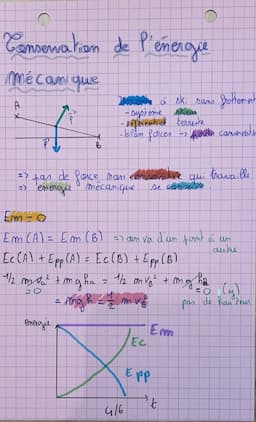 Conservation de l'énergie
mécanique
A
à ski sans frottement
- système
- référentiel terrestre
- bilan forces -> poids
P
B
=> pas de force non qui travaille
=> énergie mécanique se
Em = 0
Em(A) = Em(B) => on va d'un point à un
autre
Ec(A) + Epp(A) = Ec(B) + Epp(B)
1/2 mva² + mgha = 1/2 mvb² + mghb
= 0
= 0 (y)
= mgh = 1/2 mvb²
pas de hauteur
Energie
Em
Ec
Epp
t